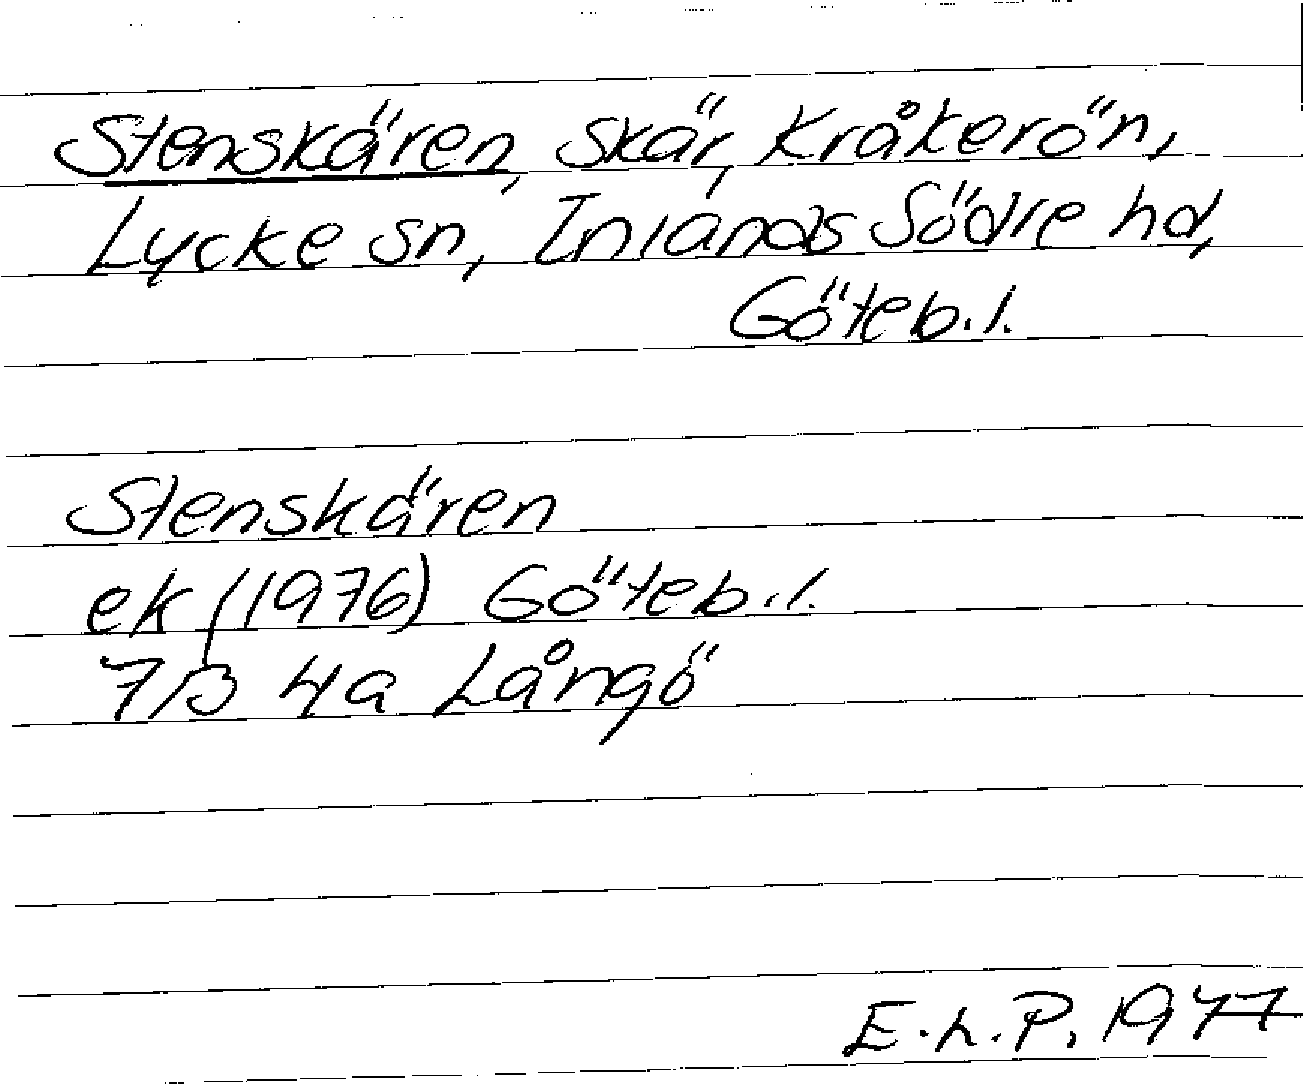 Stenskären, skär, Kråkerön,
Lycke sn, Inlands Södre hd,
Göteb.l.
Stenskären
ek (1976) Göteb.l.
7B 4a Långö
E.L.P. 1977